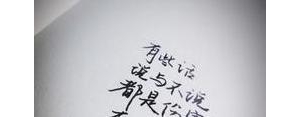 有些话
说与不说
都是份